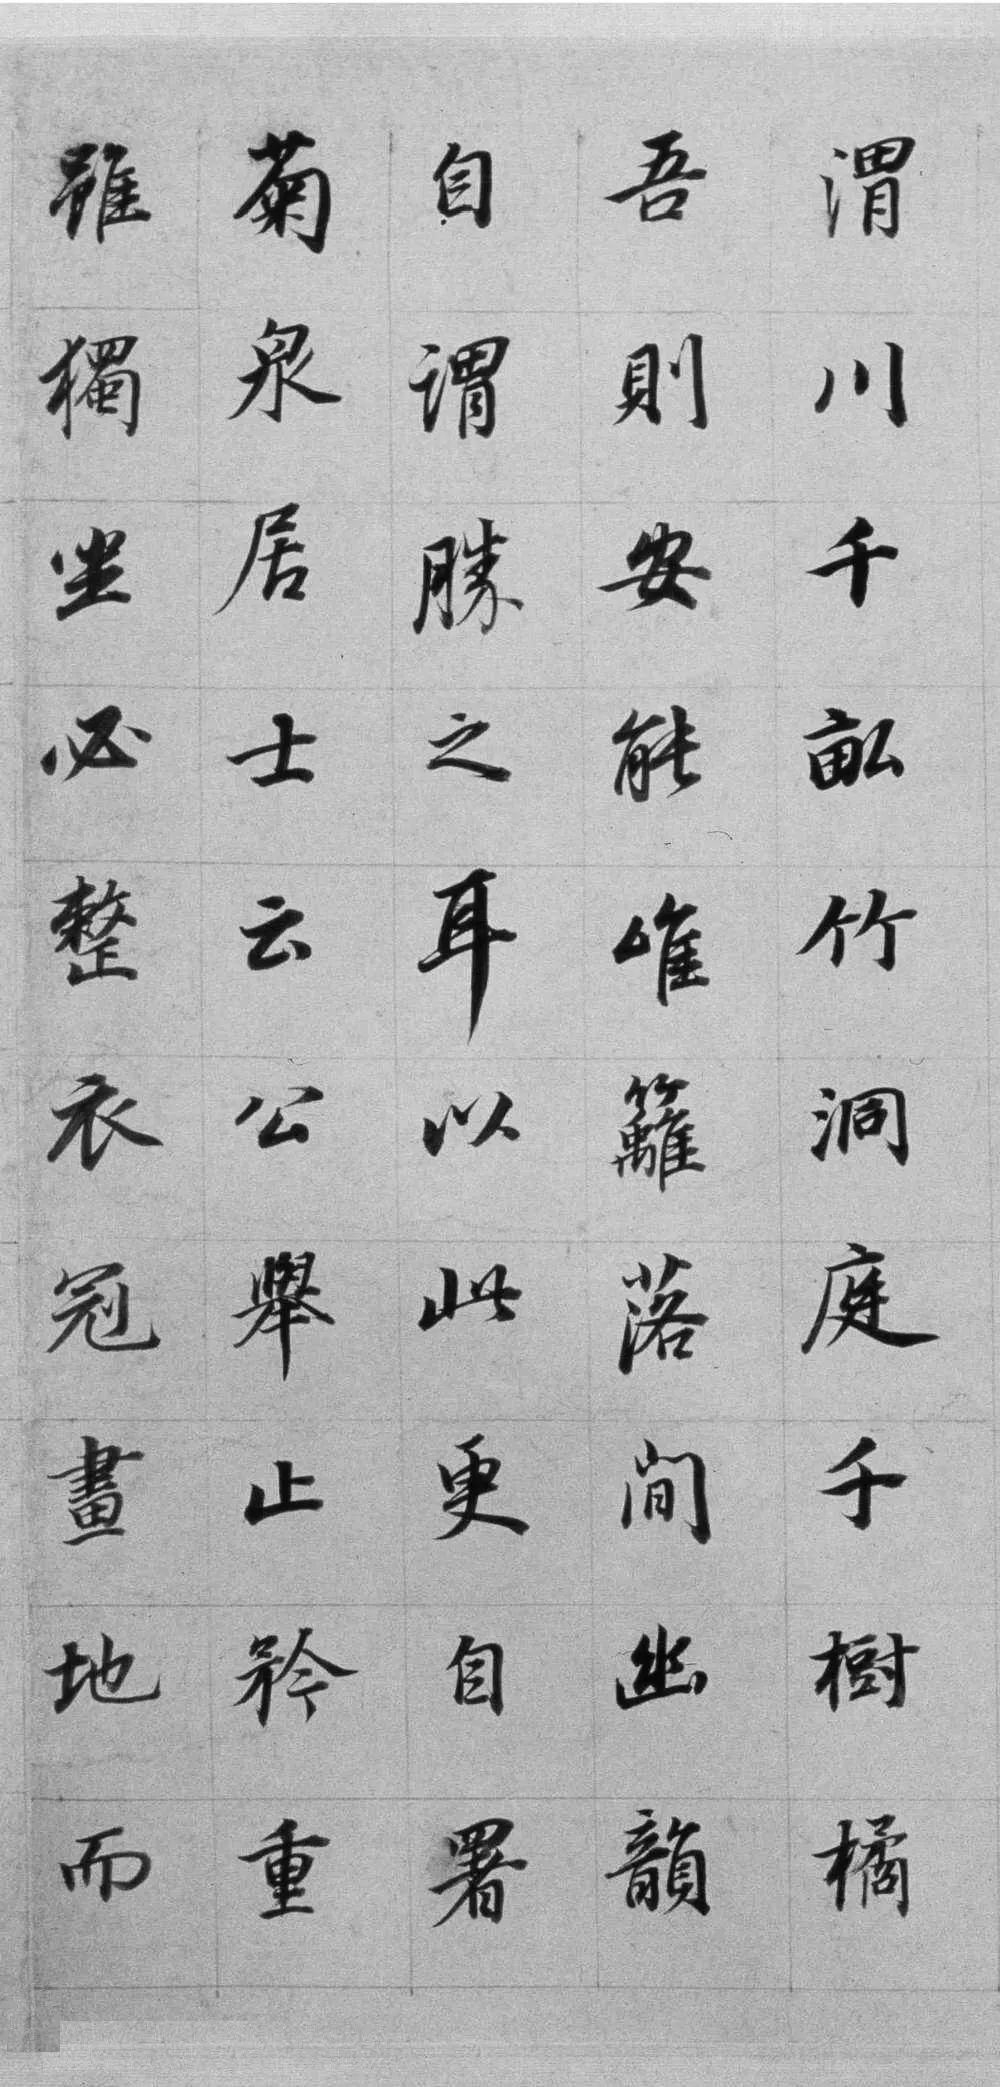 渭川千畝竹洞庭千樹橘
吾則安能唯籬落間幽韻
自謂勝之耳以此更自署
菊泉居士云公舉止矜重
雖獨坐必整衣冠畫地而